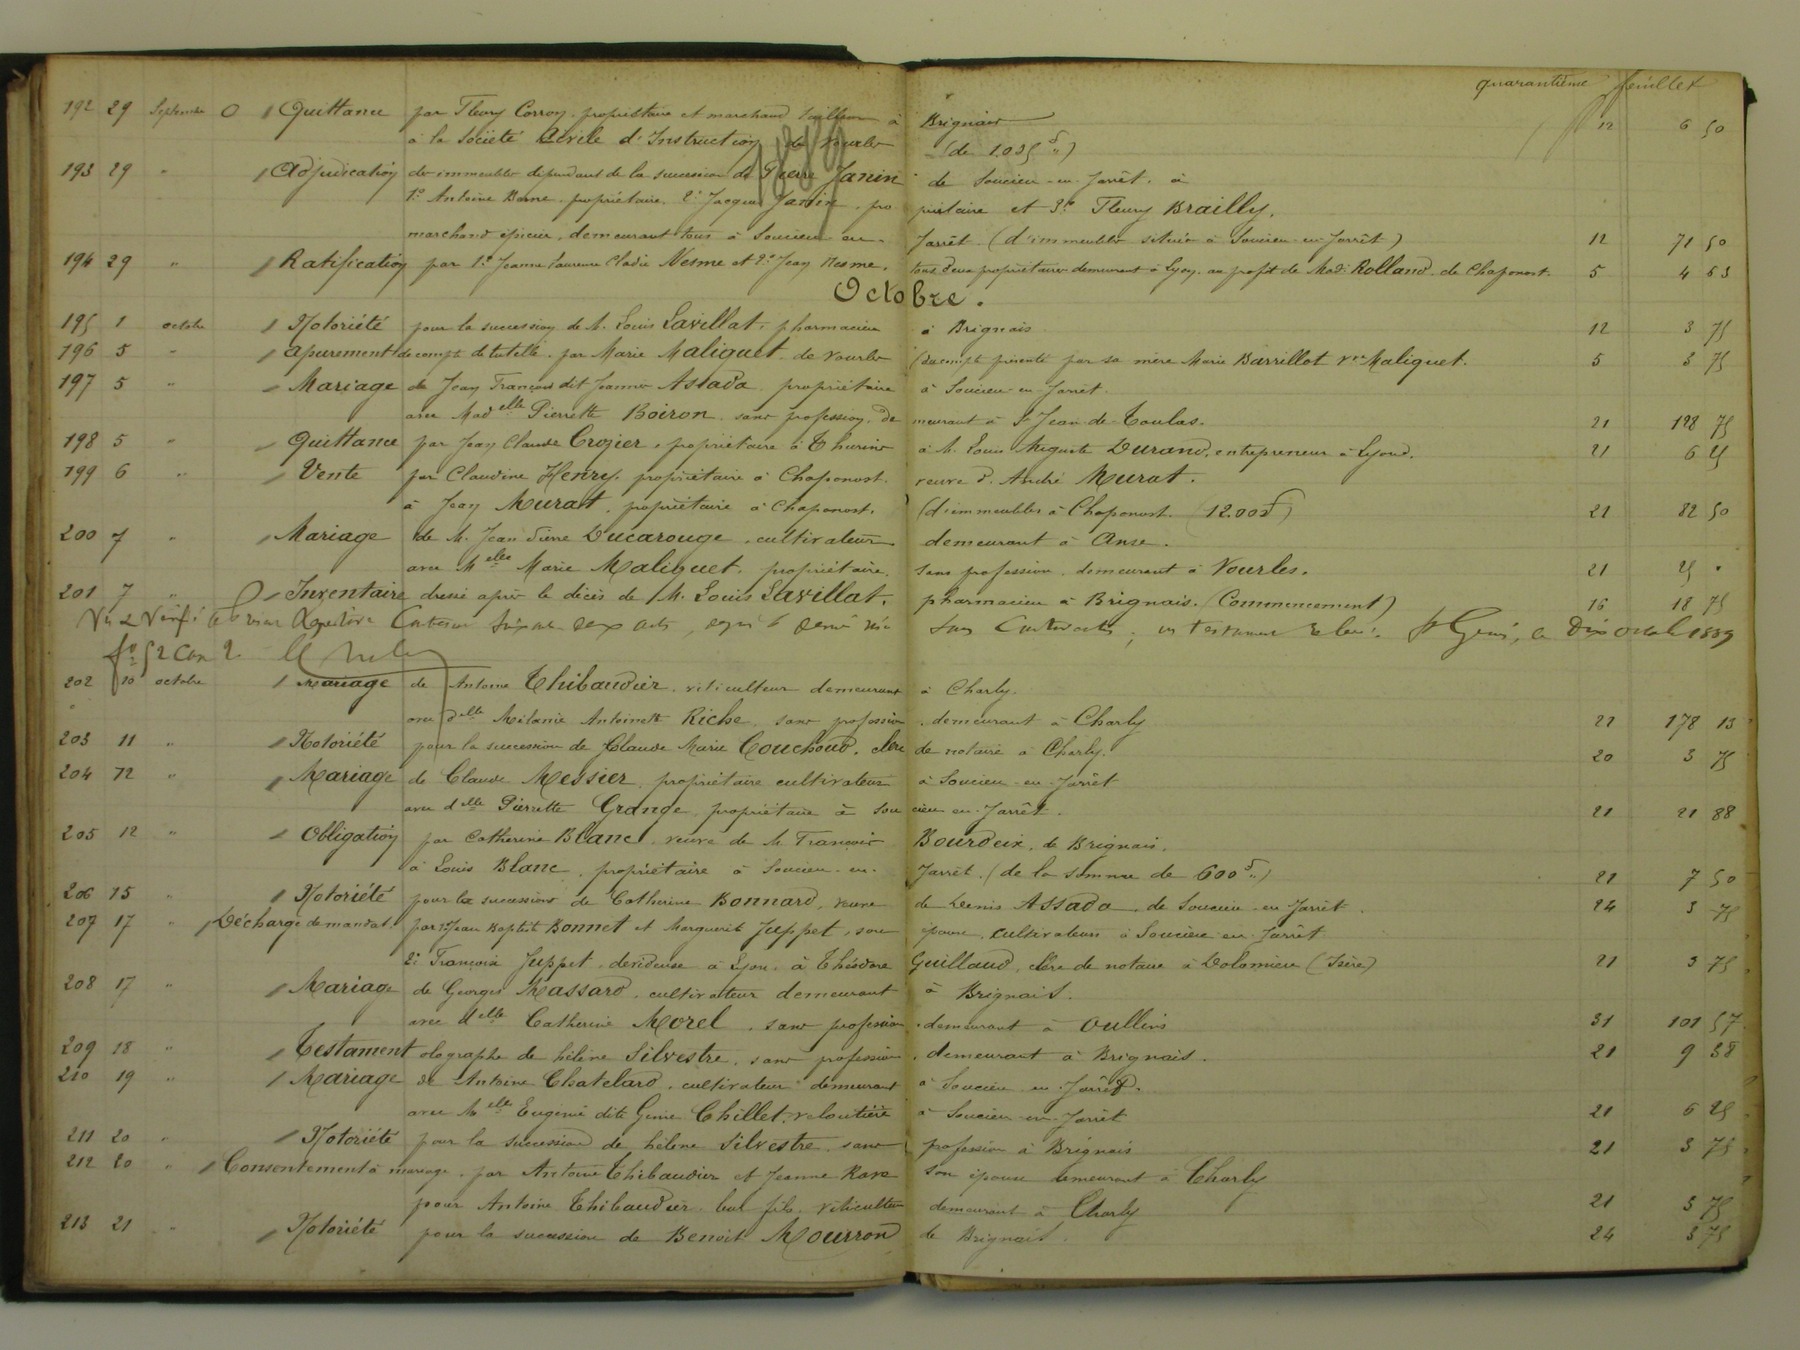 quarantième feuillet
192 29 Septembre O / Quittance par Fleury Corron, propriétaire et marchand tailleur à Brignais
à la Société Civile d'Instruction de Vourles (de 1.035 f ") 12 6 50
193 29 " / Adjudication des immeubles dépendant de la succession de Pierre Janin de Soucieu-en-Jarrêt, à
1º Antoine Barne, propriétaire, 2º Jacques Janin, propriétaire et 3º Fleury Brailly,
marchand épicier, demeurant tous à Soucieu-en-Jarrêt (d'immeubles situés à Soucieu-en-Jarrêt) 12 71 50
194 29 " / Ratification par 1º Jeanne Laurence Cladie Nesme et 2º Jean Nesme, tous deux propriétaires demeurant à Lyon, au profit de Mad. Rolland, de Chaponost. 5 4 63
1889
Octobre.
195 1 octobre / Notoriété pour la succession de M. Louis Lavillat, pharmacien à Brignais 12 3 75
196 5 " / apurement de compte de tutelle, par Marie Maliquet de Vourles (du compte présenté par sa mère Marie Barrillot Vve Maliquet. 5 3 75
197 5 " / Mariage de Jean François dit Joannès Assada, propriétaire à Soucieu-en-Jarrêt
avec Madelle Pierrette Boiron, sans profession, demeurant à St Jean-de-Toulas. 21 128 75
198 5 " / Quittance par Jean Claude Crozier, propriétaire à Thurins à M. Louis Auguste Durand, entrepreneur à Lyon. 21 6 25
199 6 " / Vente par Claudine Henry, propriétaire à Chaponost, veuve d. André Murat.
à Jean Murat, propriétaire à Chaponost, (d'immeubles à Chaponost. (12.000 f) 21 82 50
200 7 " / Mariage de M. Jean Pierre Ducarouge, cultivateur demeurant à Anse.
avec Melle Marie Maliquet, propriétaire, sans profession, demeurant à Vourles. 21 25 "
201 7 " O / Inventaire dressé après le décès de M. Louis Lavillat, pharmacien à Brignais. (Commencement) 16 18 75
Vu & Vérifié le sans Contravention, St Genis, le Dix octobre 1889
fº 52 Case 2
202 10 octobre / Mariage de Antoine Thibaudier, viticulteur demeurant à Charly.
avec delle Mélanie Antoinette Riche, sans profession, demeurant à Charly 21 178 13
203 11 " / Notoriété pour la succession de Claude Marie Couchoud, clerc de notaire à Charly. 20 3 75
204 12 " / Mariage de Claude Messier, propriétaire cultivateur à Soucieu-en-Jarrêt
avec delle Pierrette Grange, propriétaire à Soucieu-en-Jarrêt. 21 21 88
205 12 " / Obligation par Catherine Blanc, veuve de M. François Bourdeix, de Brignais,
à Louis Blanc, propriétaire à Soucieu-en-Jarrêt. (de la somme de 600 f ") 21 7 50
206 15 " / Notoriété pour les successions de Catherine Bonnard, veuve de Denis Assada, de Soucieu-en-Jarrêt. 24 3 75
207 17 " / Décharge de mandat par 1º Jean Baptiste Bonnet et Marguerite Juppet, son épouse, cultivateurs à Soucieu-en-Jarrêt
2º François Juppet, devideuse à Lyon, à Théodore Guillaud, clerc de notaire à Dolomieu (Isère) 21 3 75
208 17 " / Mariage de Georges Massard, cultivateur demeurant à Brignais.
avec delle Catherine Morel, sans profession, demeurant à Oullins 31 101 57
209 18 " / Testament olographe de hélène Silvestre, sans profession, demeurant à Brignais. 21 9 38
210 19 " / Mariage de Antoine Chatelard, cultivateur demeurant à Soucieu-en-Jarrêt.
avec Melle Eugénie dite Génie Chillet, veloutière à Soucieu-en-Jarrêt 21 6 25
211 20 " / Notoriété pour la succession de hélène Silvestre, sans profession à Brignais 21 3 75
212 20 " / Consentement à mariage, par Antoine Thibaudier et Jeanne son épouse demeurant à Charly
pour Antoine Thibaudier leur fils, viticulteur demeurant à Charly 21 3 75
213 21 " / Notoriété pour la succession de Benoît Mourron de Brignais. 24 3 75